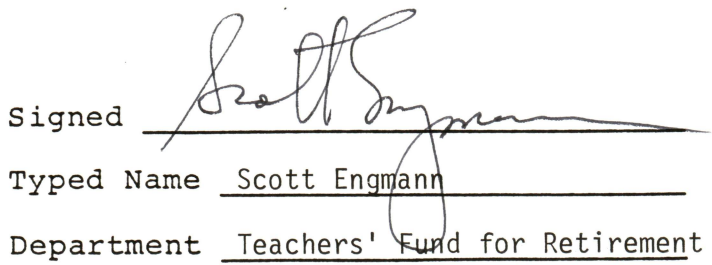 Signed Scott Engmann
Typed Name Scott Engmann
Department Teachers' Fund for Retirement